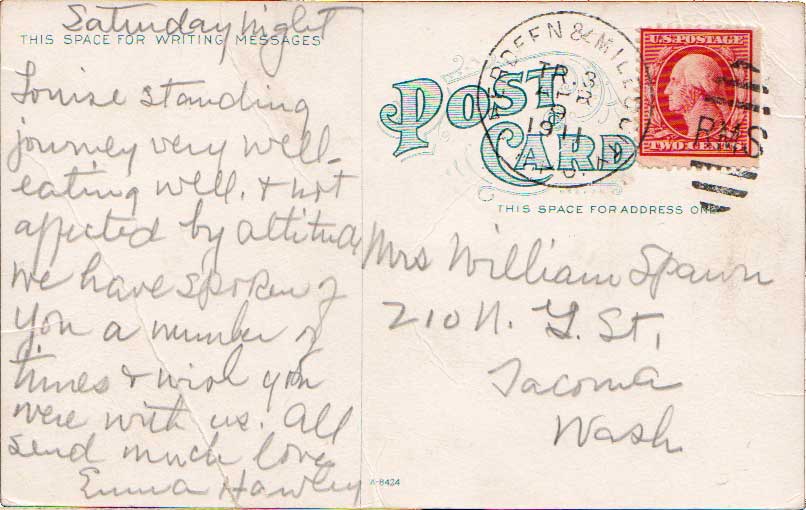 Saturday night
THIS SPACE FOR WRITING MESSAGES
Louise standing
journey very well-
eating well. & not
affected by altitude
we have spoken of
you a number of
times & wish you
were with us. All
send much love
Emma Hawley
POST CARD
ABERDEEN & MILES CY
TR. 3
APR
9
1911
R.P.O.
U.S. POSTAGE
TWO CENTS
RMS
THIS SPACE FOR ADDRESS ONL
Mrs William Spawn
210 N. G. St,
Tacoma
Wash
A-8424